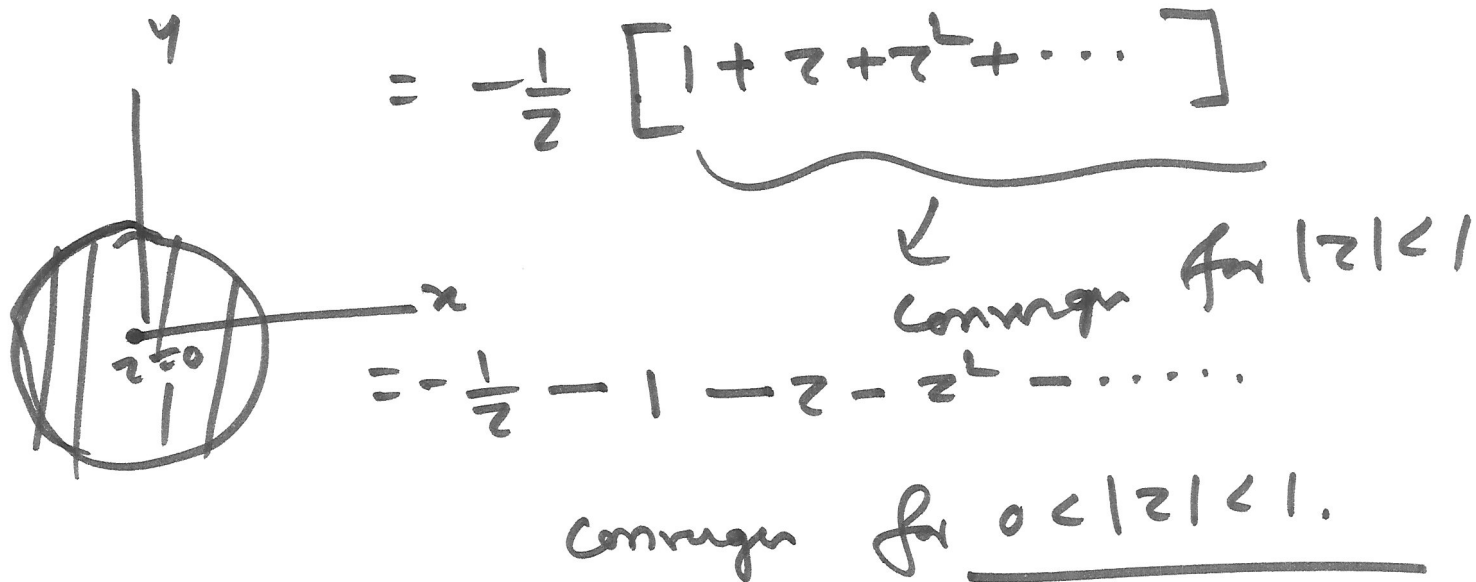 y
= -1/z [1 + z + z² + ....]
converges for |z|<1
x
z=0
= -1/z - 1 - z - z² - ......
converges for 0<|z|<1.